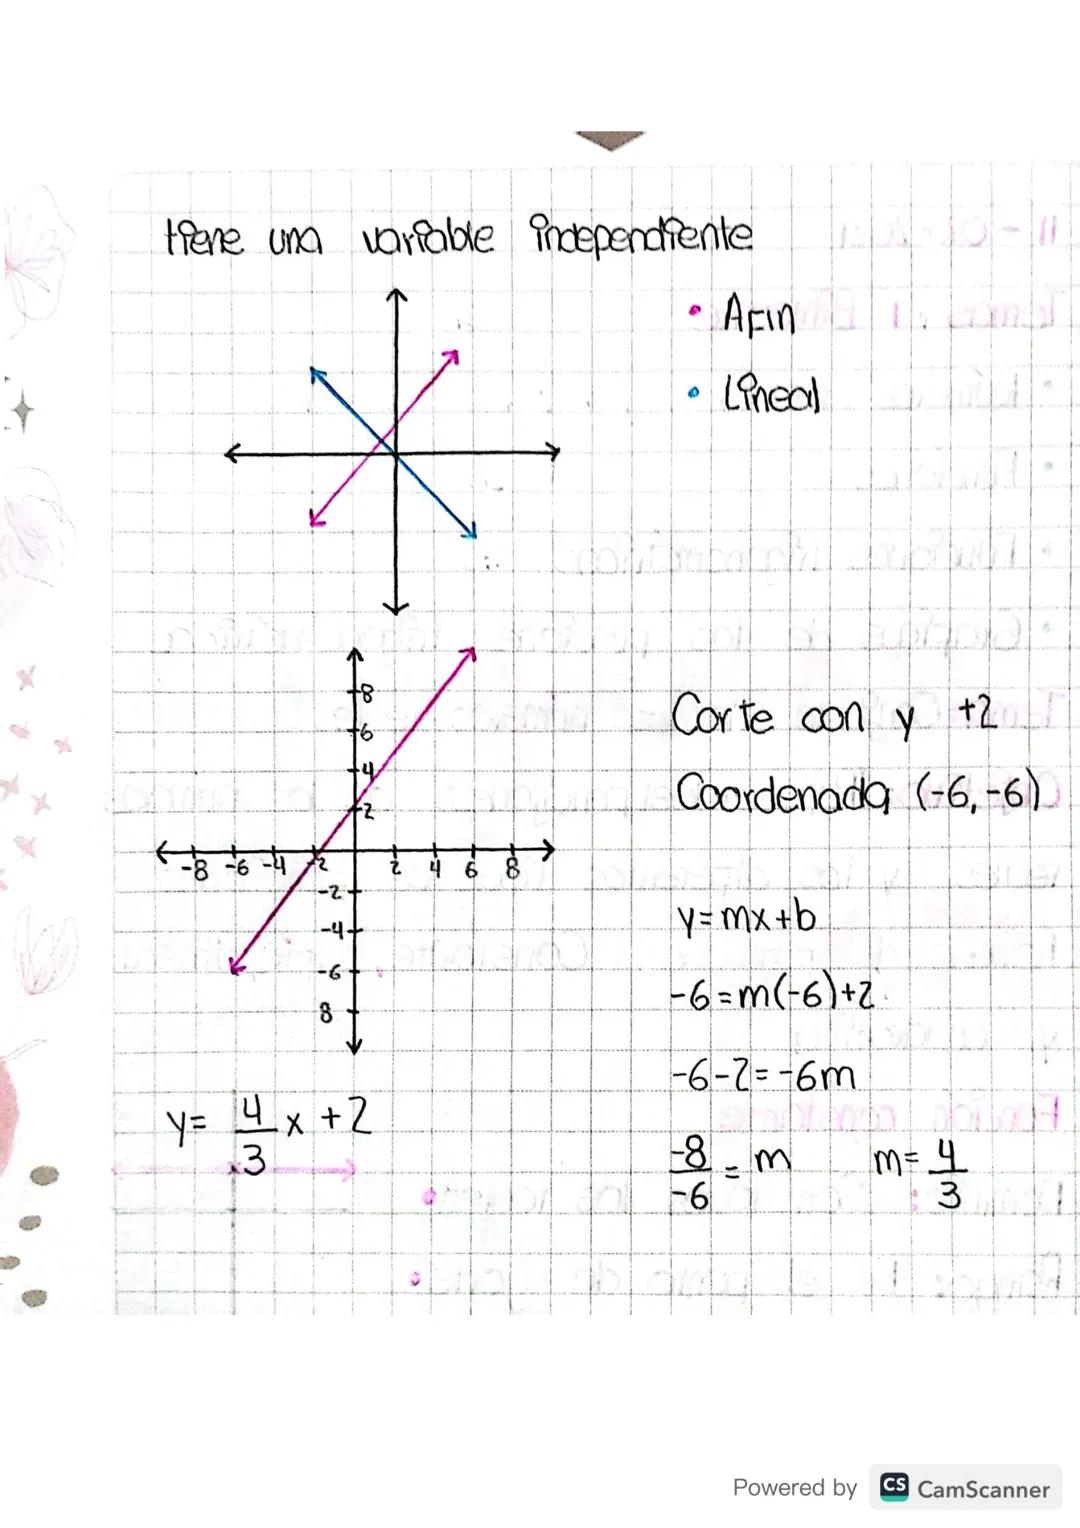 tiene una variable independiente
• Afin
• Lineal
8
6
4
2
-8 -6 -4 -2 2 4 6 8
-2
-4
-6
8
Corte con y +2
Coordenada (-6,-6)
y=mx+b
-6=m(-6)+2
-6-2=-6m
-8/-6 = m m= 4/3
y= 4/3 x +2
Powered by CS CamScanner